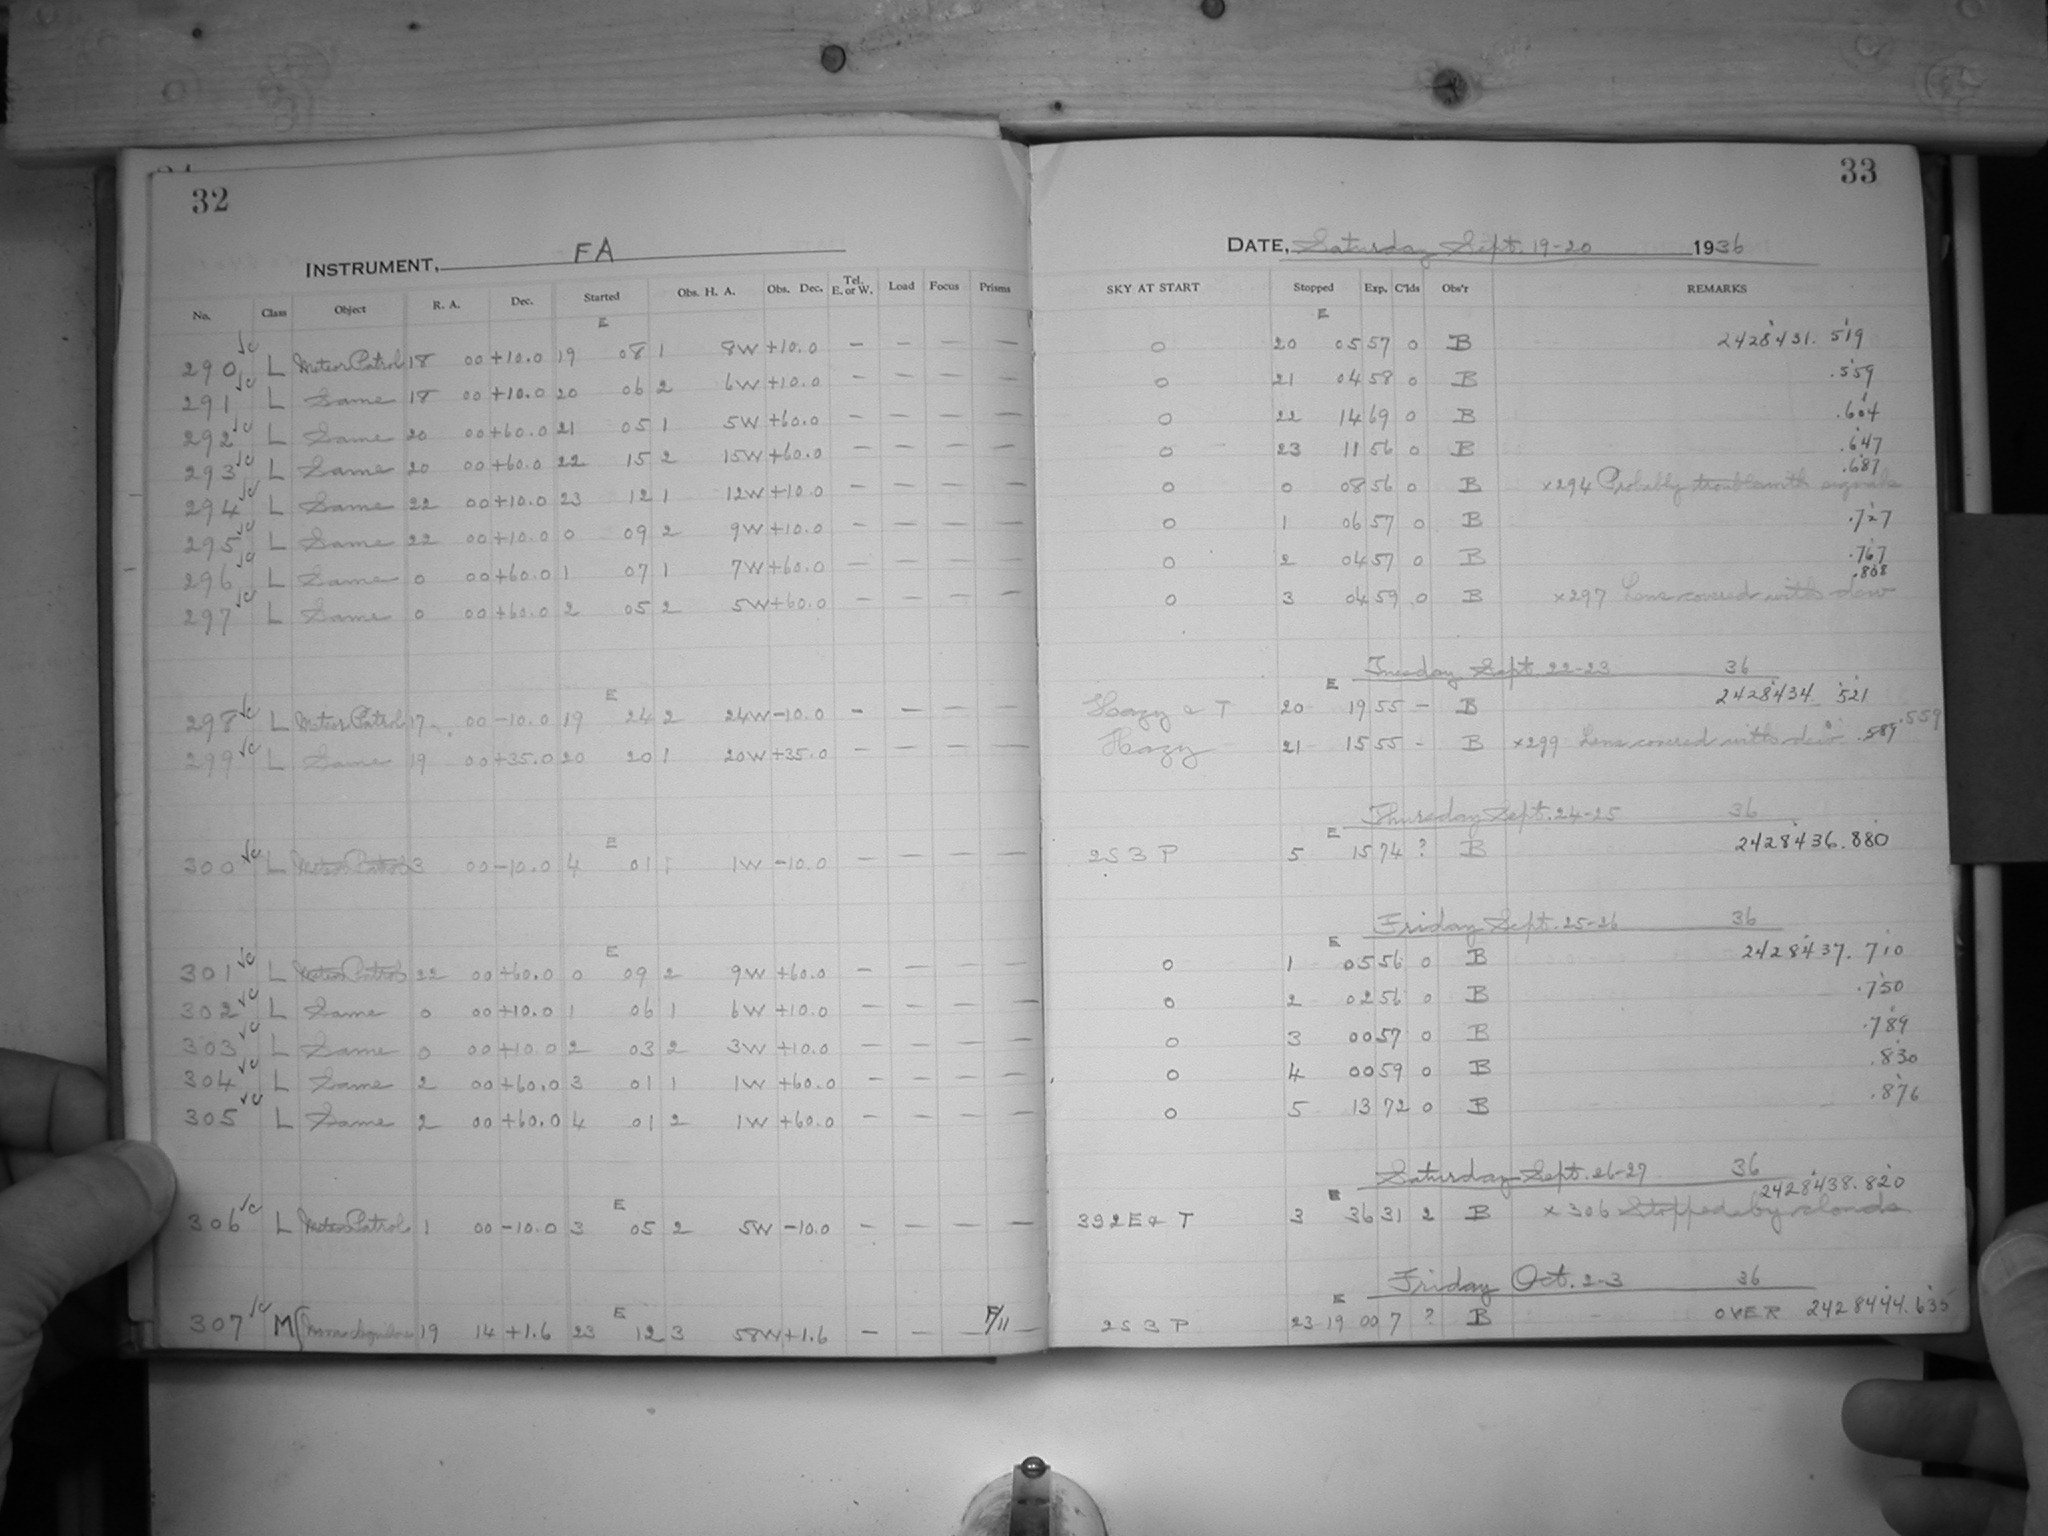 32
INSTRUMENT, FA
No. Class Object R. A. Dec. Started Obs. H. A. Obs. Dec. Tel. E. or W. Load Focus Prisms
E
290 L Meteor Patrol 18 00 +10.0 19 08 1 8W +10.0 — — — —
291 L Same 18 00 +10.0 20 06 2 6W +10.0 — — — —
292 L Same 20 00 +60.0 21 05 1 5W +60.0 — — — —
293 L Same 20 00 +60.0 22 15 2 15W +60.0 — — — —
294 L Same 22 00 +10.0 23 12 1 12W +10.0 — — — —
295 L Same 22 00 +10.0 0 09 2 9W +10.0 — — — —
296 L Same 0 00 +60.0 1 07 1 7W +60.0 — — — —
297 L Same 0 00 +60.0 2 05 2 5W +60.0 — — — —
E
298 L Meteor Patrol 17 00 -10.0 19 24 2 24W -10.0 — — — —
299 L Same 19 00 +35.0 20 20 1 20W +35.0 — — — —
E
300 L Meteor Patrol 3 00 -10.0 4 01 1 1W -10.0
E
301 L Meteor Patrol 22 00 +60.0 0 09 2 9W +60.0 — — — —
302 L Same 0 00 +10.0 1 06 1 6W +10.0 — — — —
303 L Same 0 00 +10.0 2 03 2 3W +10.0 — — — —
304 L Same 2 00 +60.0 3 01 1 1W +60.0 — — — —
305 L Same 2 00 +60.0 4 01 2 1W +60.0 — — — —
E
306 L Meteor Patrol 1 00 -10.0 3 05 2 5W -10.0 — — — —
E
307 M Nova Aquilae 19 14 +1.6 23 12 3 58W +1.6 — — F/11
33
DATE, Saturday Sept. 19-20 1936
SKY AT START Stopped Exp. C'lds Obs'r REMARKS
E
0 20 05 57 0 B 2428431.519
0 21 04 58 0 B .559
0 22 14 69 0 B .604
0 23 11 56 0 B .647
.687
0 0 08 56 0 B x294 Probably trouble with signals
0 1 06 57 0 B .727
0 2 04 57 0 B .767
.808
0 3 04 59 0 B x297 Lens covered with dew
Tuesday Sept. 22-23 36
E
Hazy & T 20 19 55 — B 2428434 521
Hazy 21 15 55 — B x299 Lens covered with dew .589 .559
Thursday Sept. 24-25 36
E
2S 3 P 5 15 74 ? B 2428436.880
Friday Sept. 25-26 36
E
0 1 05 56 0 B 2428437.710
0 2 02 56 0 B .750
0 3 00 57 0 B .789
0 4 00 59 0 B .830
0 5 13 72 0 B .876
Saturday Sept. 26-27 36
E 2428438.820
392E & T 3 36 31 2 B x306 Stopped by clouds
Friday Oct. 2-3 36
E
2S 3 P 23 19 00 7 ? B OVER 2428444.635